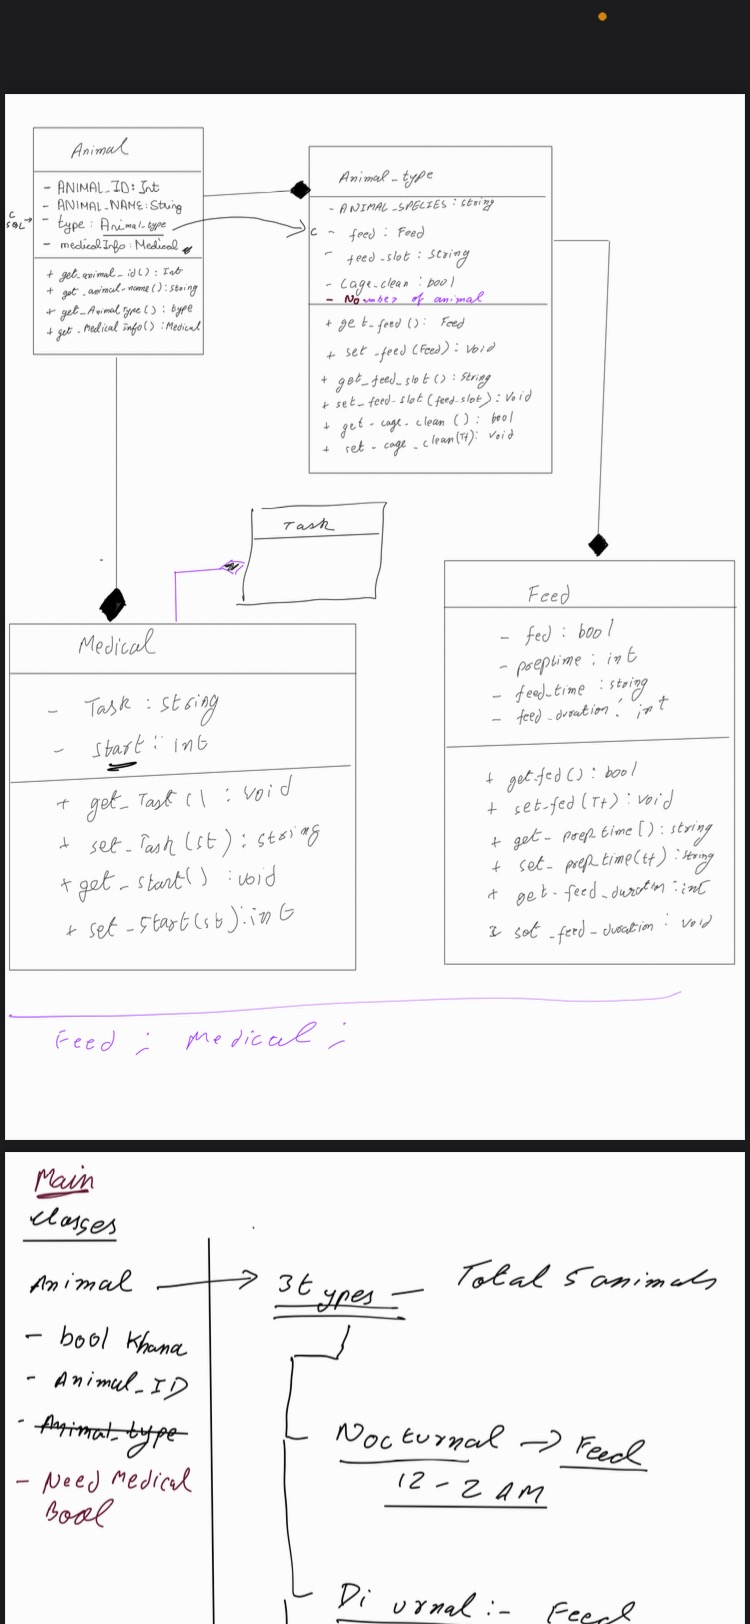 Animal
- ANIMAL_ID: Int
- ANIMAL_NAME: String
- type: Animal_type
- medicalInfo: Medical
+ get_animal_id(): Int
+ get_animal_name(): string
+ get_AnimalType(): type
+ get_Medical Info(): Medical
C
SQL→
Animal_type
- ANIMAL_SPECIES: string
C - feed: Feed
- feed_slot: String
- Cage_clean: bool
- Number of animal
+ get_feed(): Feed
+ set_feed(Feed): Void
+ get_feed_slot(): String
+ set_feed_slot(feed_slot): Void
+ get_cage_clean(): bool
+ set_cage_clean(Tf): void
Task
Medical
- Task: string
- Start: int
+ get_Task(): void
+ set_Task(st): string
+ get_start(): void
+ set_start(st): int
Feed
- fed: bool
- preptime: int
- feed_time: string
- feed_duration: int
+ get_fed(): bool
+ set_fed(Tf): void
+ get_prep_time(): string
+ set_prep_time(tf): string
+ get_feed_duration: int
+ set_feed_duration: void
Feed ; Medical ;
Main
classes
Animal → 3 types — Total 5 animals
- bool Khana
- Animal_ID
- Animal_type
- Need Medical
Bool
Nocturnal → Feed
12 - 2 AM
Diurnal :- Feed